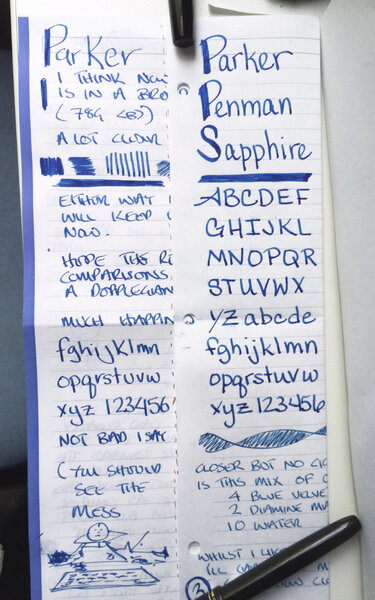 Parker
I THINK
IS IN A BRO
(784
A LOT CLOSER
EITHER WAY I
WILL KEEP
NOW.
HOPE THE
COMPARISONS
A DOPPLEGAN
MUCH HAPPIN
fghijklmn
opqrstuvw
xyz 123456
NOT BAD I SAY
(YOU SHOULD
SEE THE
MESS
Parker
Penman
Sapphire
ABCDEF
GHIJKL
MNOPQR
STUVWX
YZ abcde
fghijklmn
opqrstuvw
xyz 123456
CLOSER BUT NO CIG
IS THIS MIX OF
4 BLUE VELVE
2 DIAMINE MA
10 WATER
WHILST I LIK
I'LL
3